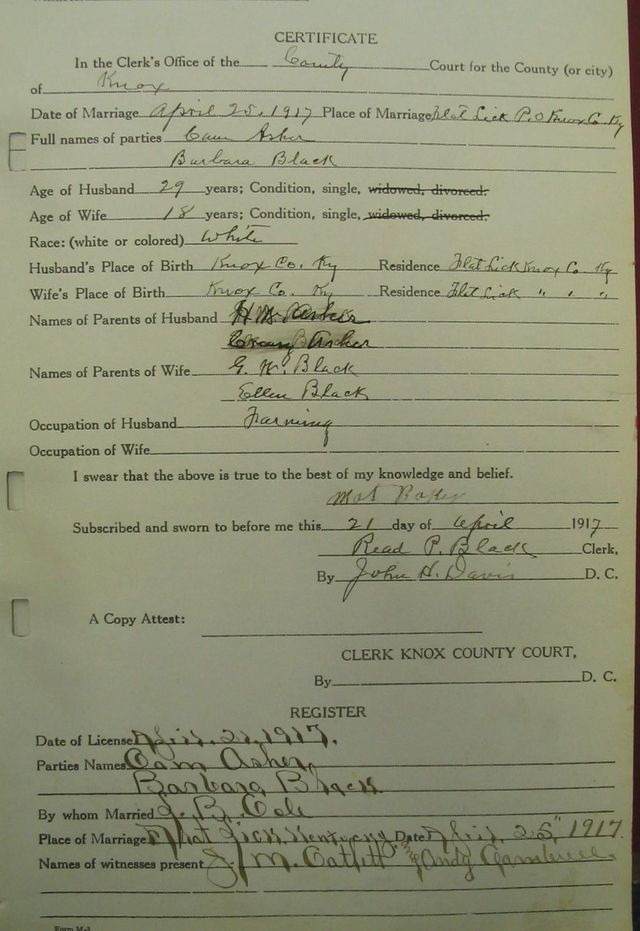 CERTIFICATE
In the Clerk's Office of the County Court for the County (or city)
of Knox
Date of Marriage April 25, 1917 Place of Marriage Flat Lick P.O Knox Co. Ky
Full names of parties Cam Asher
Barbara Black
Age of Husband 29 years; Condition, single, widowed, divorced.
Age of Wife 18 years; Condition, single, widowed, divorced.
Race: (white or colored) White
Husband's Place of Birth Knox Co. Ky Residence Flat Lick Knox Co Ky
Wife's Place of Birth Knox Co. Ky Residence Flat Lick " " "
Names of Parents of Husband H
Asher
Names of Parents of Wife G. W. Black
Ellen Black
Occupation of Husband Farming
Occupation of Wife
I swear that the above is true to the best of my knowledge and belief.
Mat
Subscribed and sworn to before me this 21 day of April 1917
Read P. Black Clerk,
By John H. Davis D. C.
A Copy Attest:
CLERK KNOX COUNTY COURT,
By D. C.
REGISTER
Date of License April. 21, 1917.
Parties Names Cam Asher,
Barbara Black
By whom Married J. B. Cole
Place of Marriage Flat Lick Kentucky Date April. 25" 1917
Names of witnesses present J. M. Catlett & Andy
Form M-1